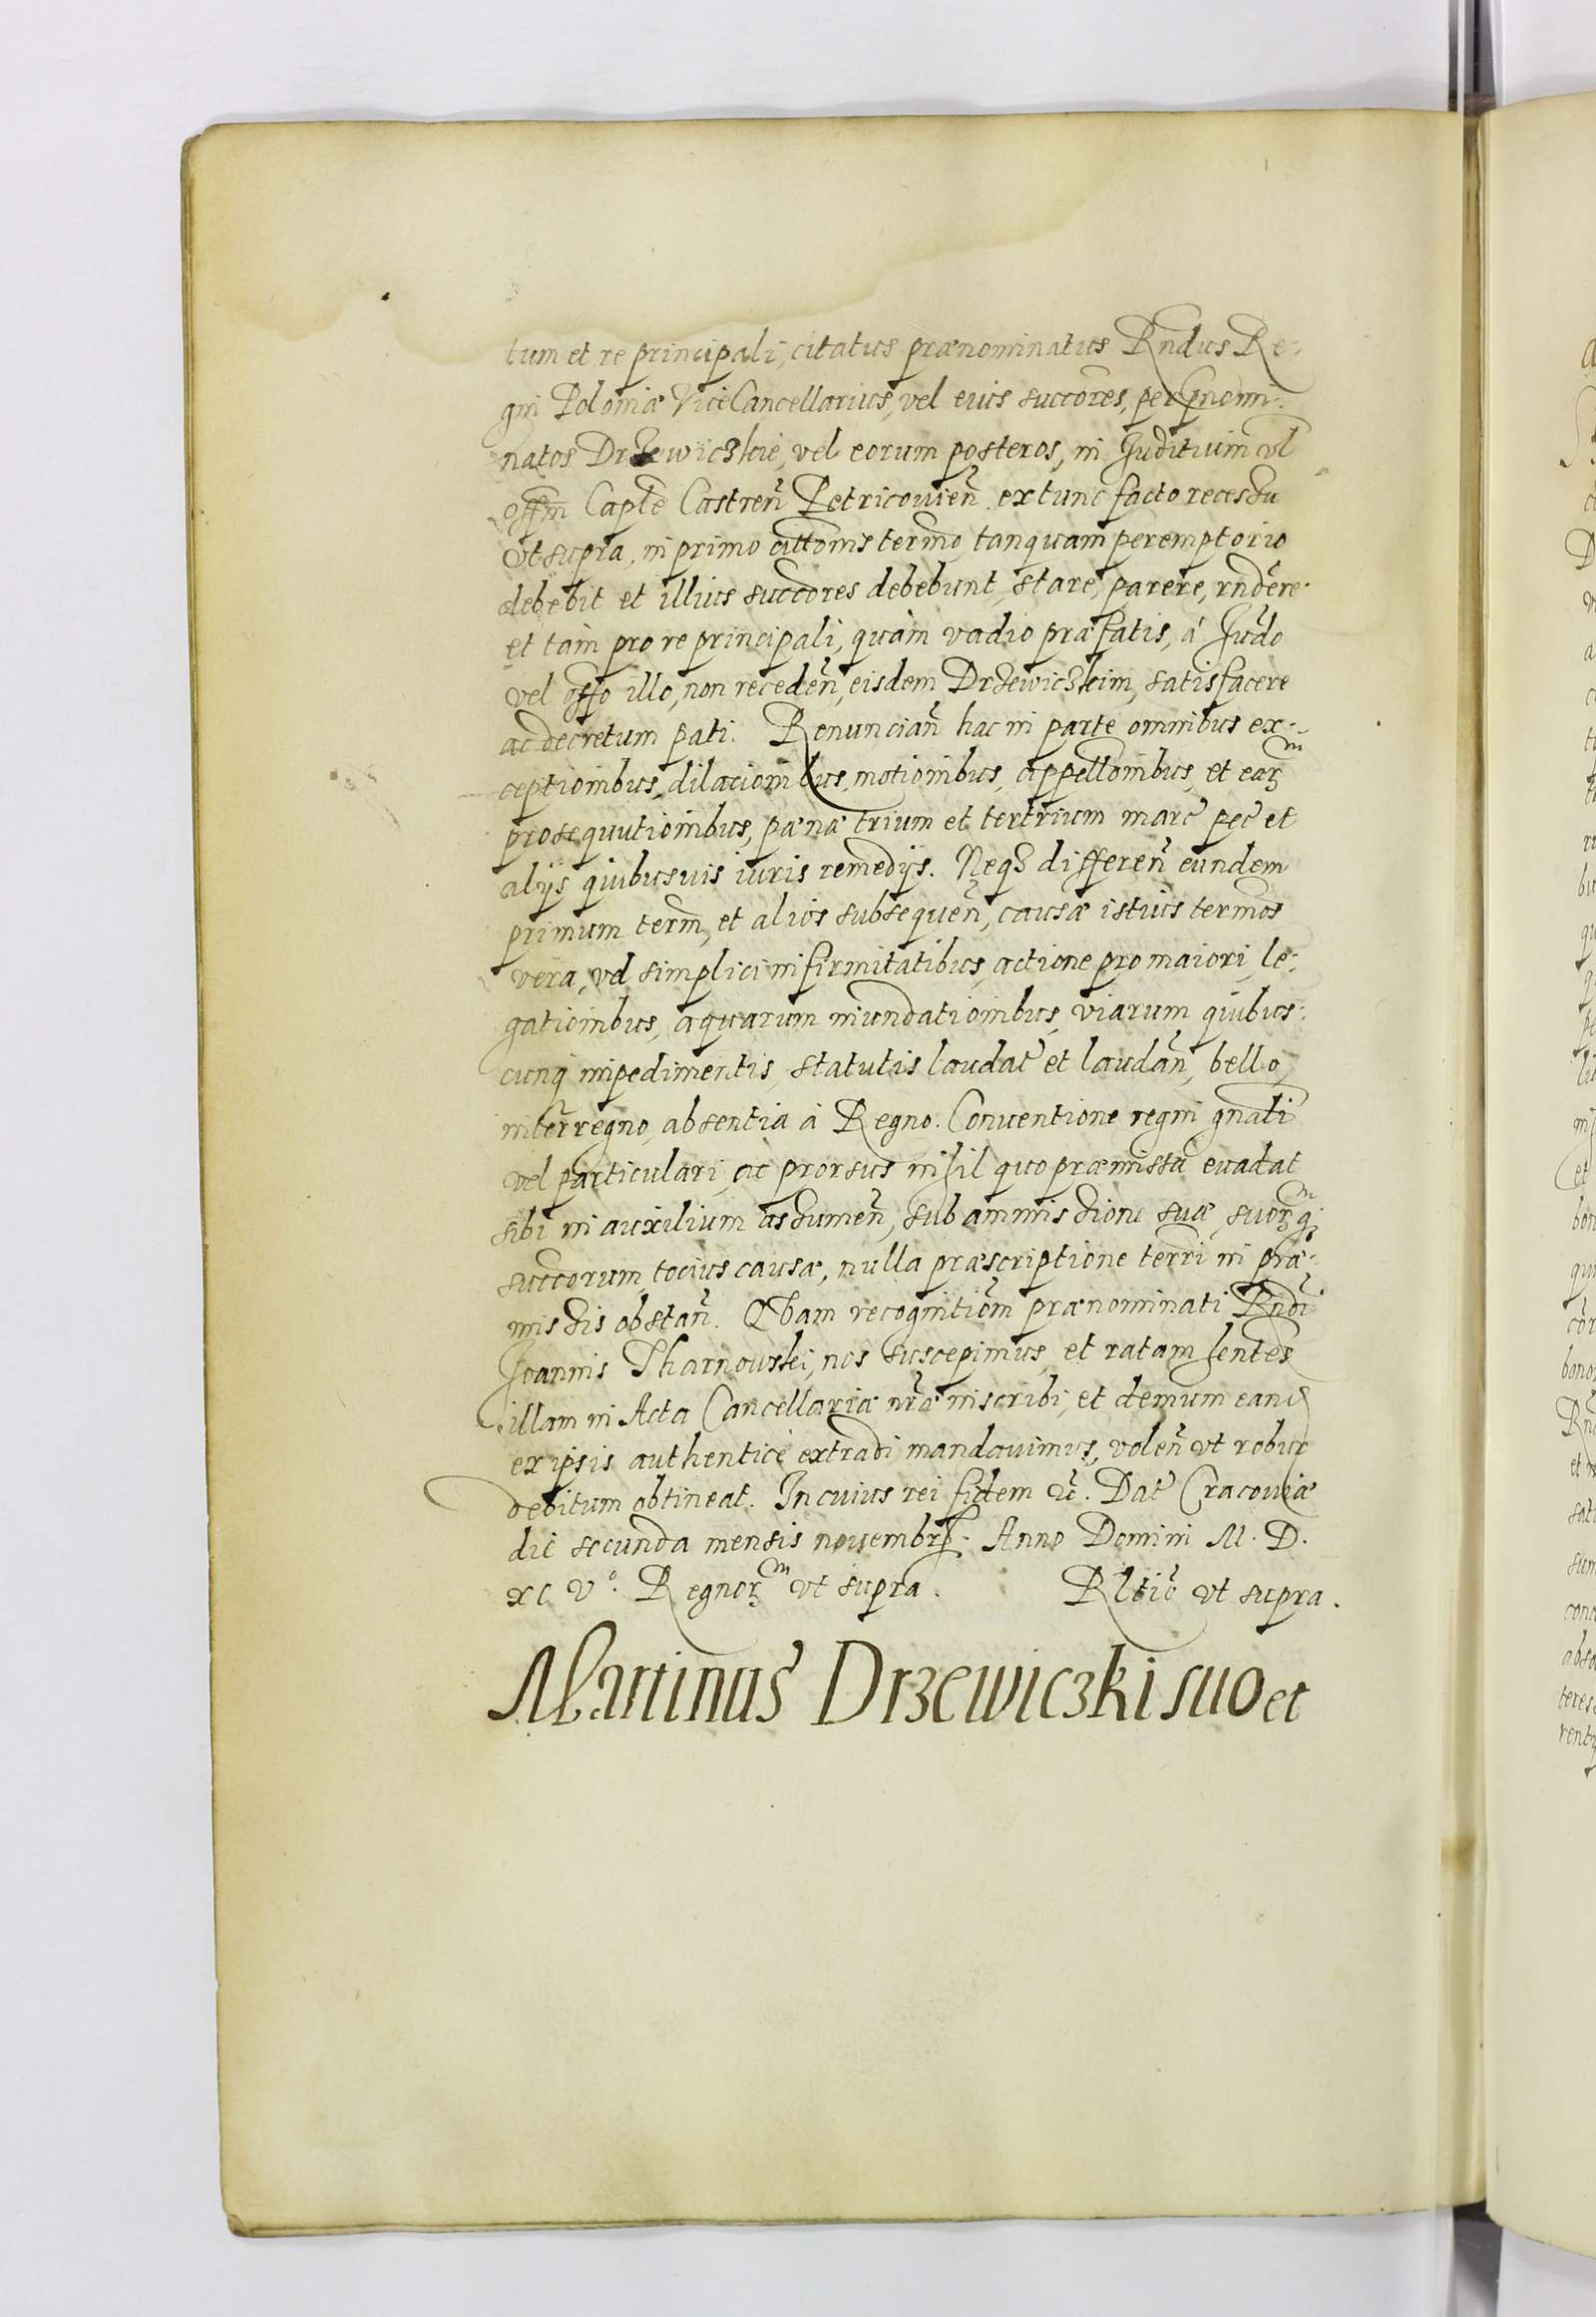 tum et re principali, citatus prænominatus Rndus Re-
gni Poloniæ ViceCancellarius, vel eius succores, per pnomi-
natos Drzewiczkie, vel eorum posteros, in Juditium vl
offm Caple Castren Petricouien. extunc facto recessu
vt supra, in primo cittonis termo, tanquam peremptorio
debebit et illius succores debebunt, stare, parere, rndere
et tam pro re principali, quàm vadio præfatis, á Judo
vel offo illo, non receden, eisdem Drzewiczkim, satisfacere
ac decretum pati. Renuncian hac in parte omnibus ex-
ceptionibus, dilacionibus, motionibus, appellonibus, et earꝫm
prosequutionibus, pænæ trium et tertrium marc pec et
alijs quibusuis iuris remedijs. Neqꝫ differen eundem
primum term, et alios subsequen, causæ istius termos
vera, vel simplici infirmitatibus, actione pro maiori, le-
gationibus, aquarum inundationibus, viarum quibus-
cunq impedimentis, statutis laudat et laudan, bello,
interregno, absentia á Regno. Conuentione regni gnali
vel particulari, ac prorsus nihil quo præmissa euadat
sibi in auxilium assumen, sub ammissione suæ, suorꝫmq
succorum, tocius causæ, nulla præscriptione terri in præ-
missis obstan. Quam recognitiom prænominati Rndi
Joannis Tharnowski, nos suscepimus, et ratam hentes
illam in Acta Cancellariæ nræ inscribi, et demum eand
ex ipsis authenticè extradi mandauimus, volen vt robur
debitum obtineat. In cuius rei fidem etc. Dat Cracouiæ
die secunda mensis nouembris. Anno Domini M. D.
xc vº. Regnorꝫm vt supra. Rltio vt supra.
Martinus Drzewiczki suo et